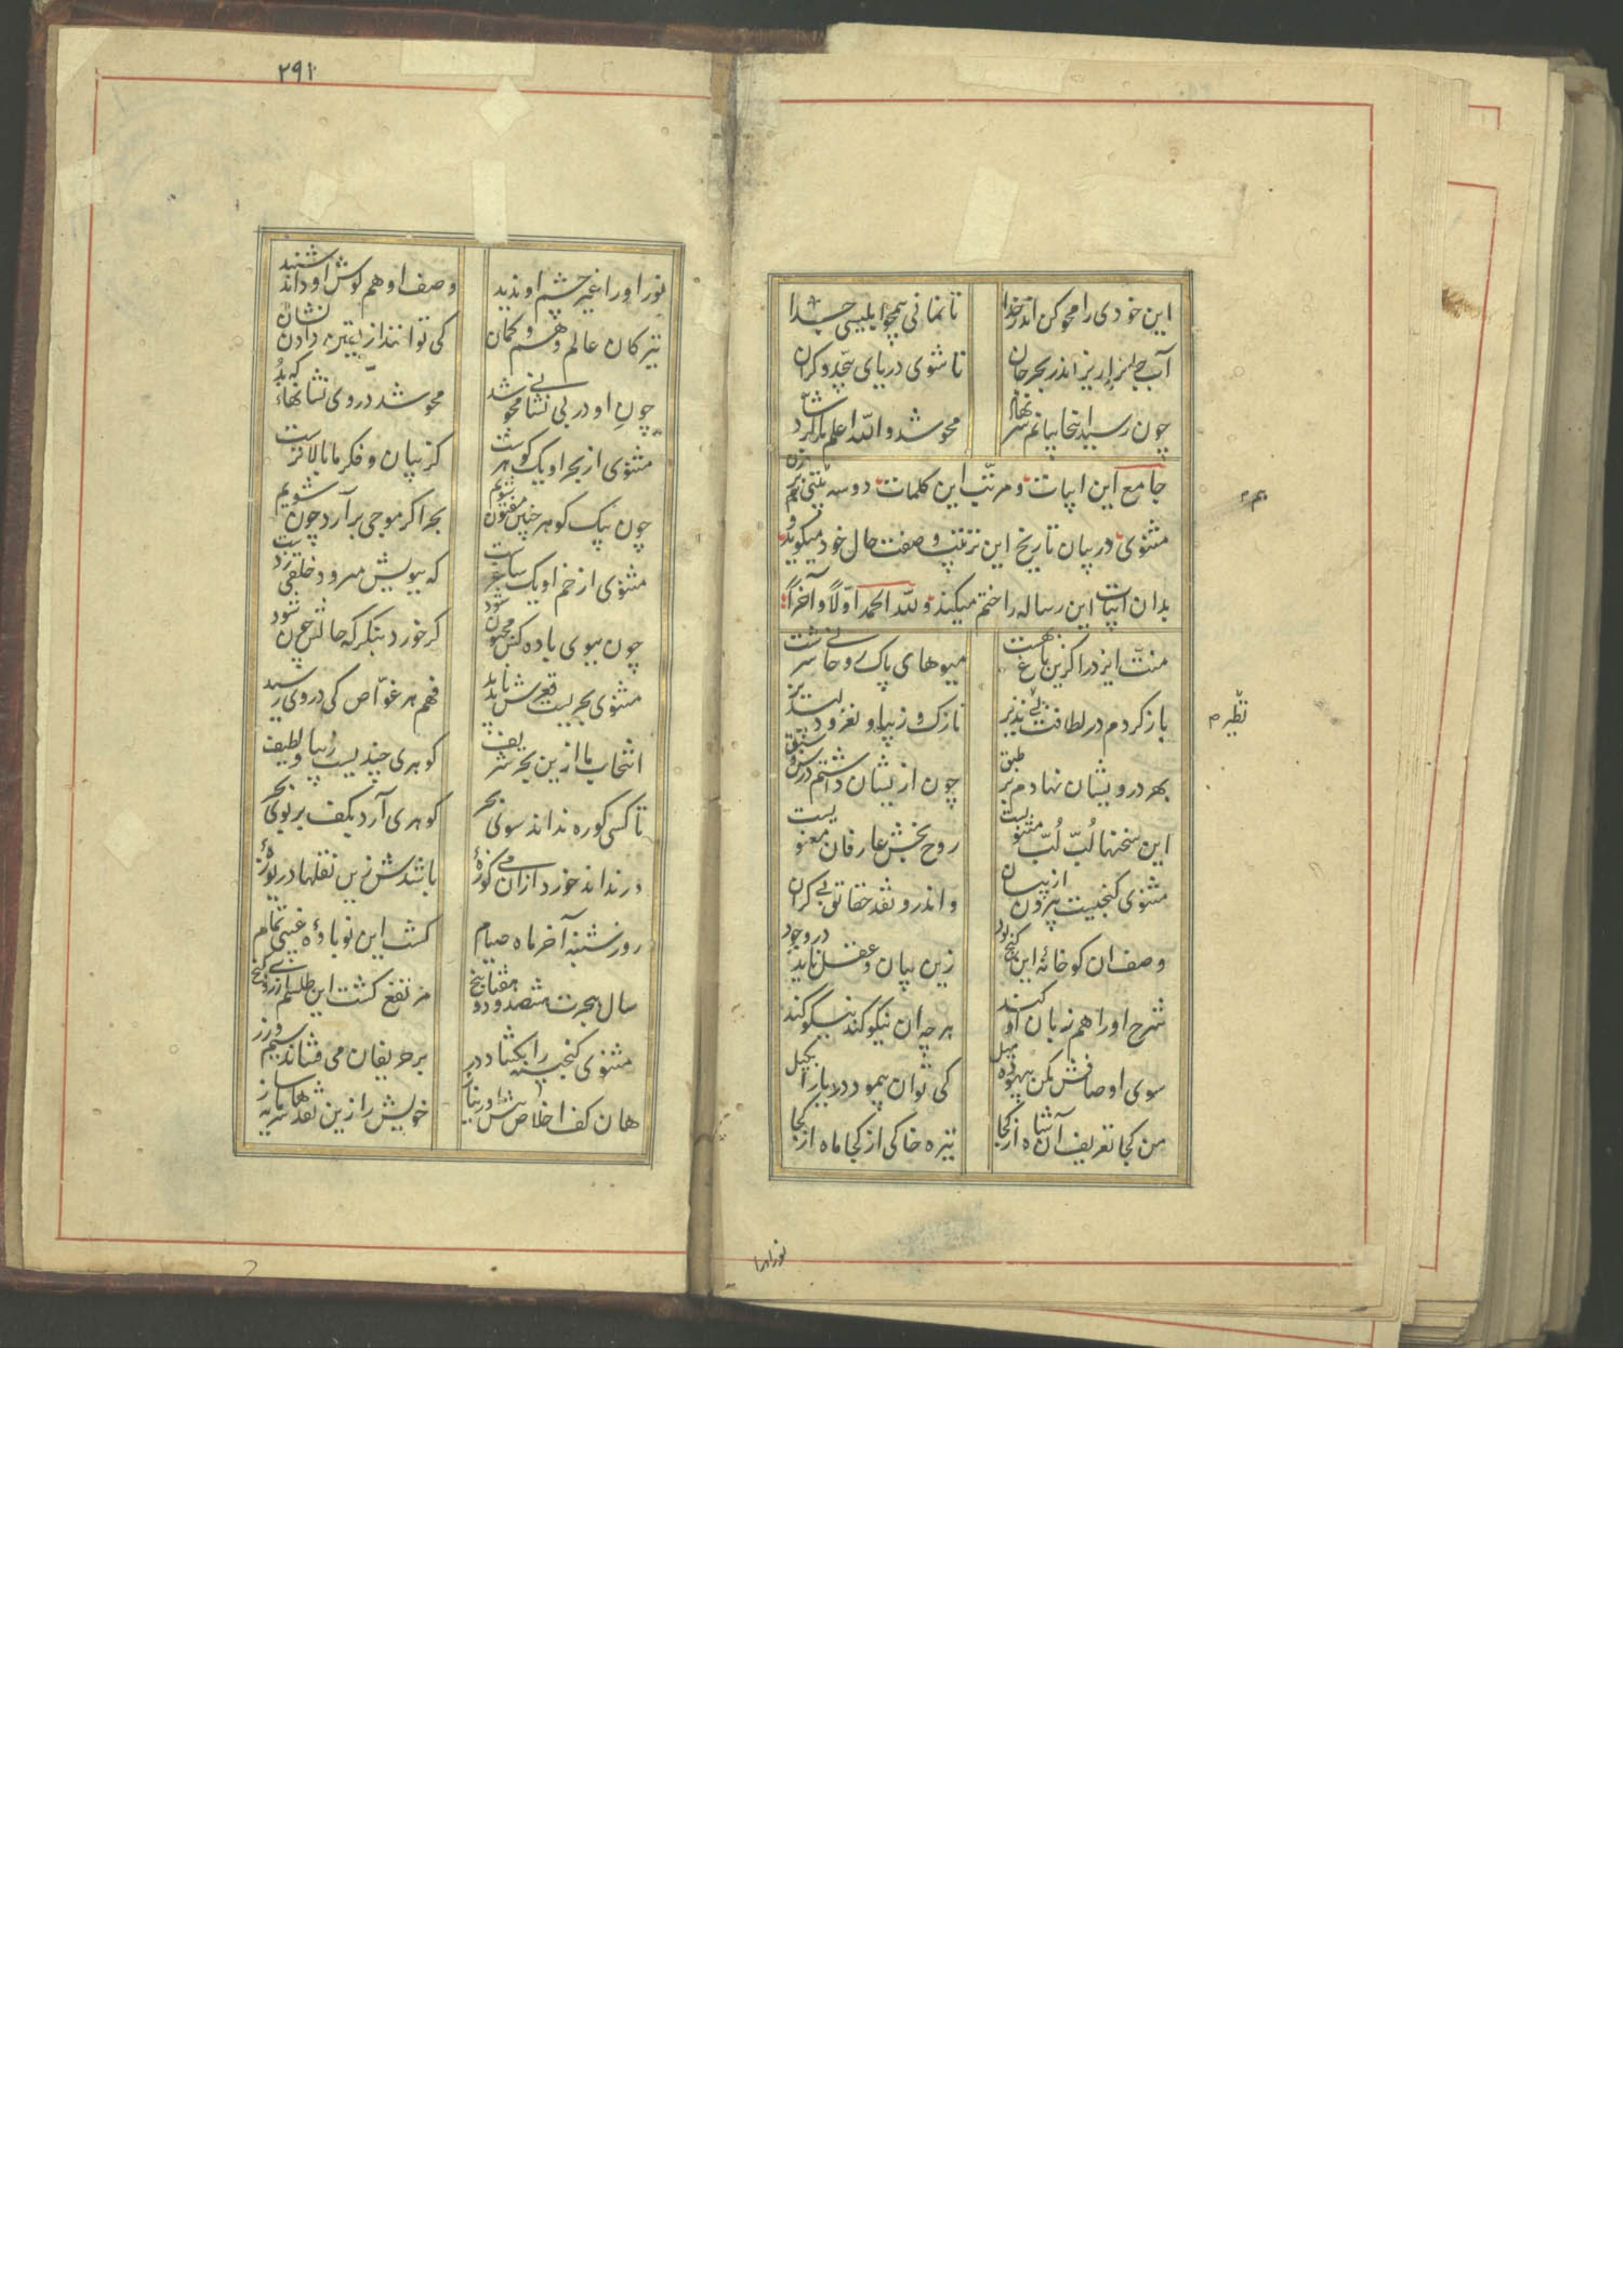 این خودی را محو کن اندر خدا
تا نمانی همچو ابلیسی جدا
آب جان را ریز اندر بحر جان
تا شوی دریای بیحد و کران
چون رسید اینجا بیانم سر نهاد
محو شد والله اعلم بالرشاد
جامع این ابیات و مرتب این کلمات دو سه بیتی بر وزن
مثنوی در بیان تاریخ این ترتیب و صفت حال خود میگوید و
بدان ابیات این رساله را ختم میکند ولله الحمد اولاً و آخراً
منت ایزد را کزین باغ بهشت
میوهای پاک روحانی سرشت
باز کردم در لطافت بی نظیر
نازک و زیبا و نغز و دلپذیر
بهر درویشان نهادم بر طبق
چون ازیشان داشتم درس و سبق
این سخنها لُبّ لُبّ مثنویست
روح بخش عارفان معنویست
مثنوی گنجیست بیرون از بیان
و اندرو نقد حقایق بی کران
وصف ان کو خانهٔ این گنج بود
زین بیان و عقل ناید در وجود
شرح او را هم زبان او کند
هر چه ان نیکو کند نیکو کند
سوی اوصافش مکن بیهوده میل
کی توان پیمود دریا را بکیل
من کجا تعریف آن شاه از کجا
تیره خاکی از کجا ماه از کجا
نور اورا
۲۹۱
نور او را غیر چشم او ندید
وصف او هم گوش او داند شنید
تیرکان عالم وهم و گمان
کی توانند از یقین دادن نشان
چون او در بی نشانی محو شد
محو شد در وی نشانها که بد
مثنوی از بحر او یک گوهرست
کز بیان و فکر ما بالاترست
چون بیک گوهر چنین مفتون شویم
بحر اگر موجی برآرد چون شویم
مثنوی از خم او یک ساغرست
که ببویش میرود خلقی ز دست
چون ببوی باده کس مجنون شود
گر خورد بنگر که حالش چون شود
مثنوی بحریست قعرش ناپدید
فهم هر غوّاص کی در وی رسید
انتخاب ما ازین بحر شریف
گوهری چندیست زیبا و لطیف
تا کسی کو ره نداند سوی بحر
گوهری آرد بکف بر بوی بحر
ور نداند خورد ازان می کوزهٔ
باشدش زین نقلها دریوزهٔ
روز شنبه آخر ماه صیام
گشت این نوباوهٔ غیبی تمام
سال هجرت هشصد و هفتاد و پنج
مرتفع گشت این طلسم از روی گنج
مثنوی گنجینه را بگشاد در
بر حریفان می فشاند سیم و زر
هان کف اخلاص پیش اور بناز
خویش را زین نقدها سرمایه ساز